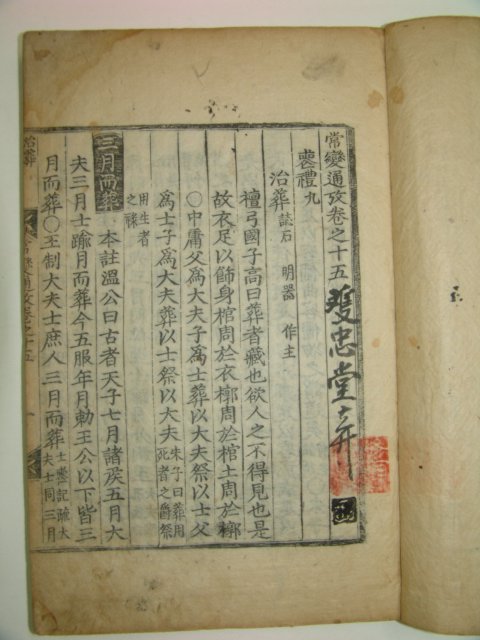 常變通攷卷之十五
雙忠堂弆
喪禮九
治葬 誌石 明器 作主
檀弓國子高曰葬者藏也欲人之不得見也是
故衣足以飾身棺周於衣槨周於棺土周於槨
○中庸父爲大夫子爲士葬以大夫祭以士父
爲士子爲大夫葬以士祭以大夫 朱子曰葬用死者之爵祭
用生者之祿
三月而葬 本註溫公曰古者天子七月諸侯五月大
夫三月士踰月而葬今五服年月勅王公以下皆三
月而葬○王制大夫士庶人三月而葬 士喪記疏大夫士同三月
治葬